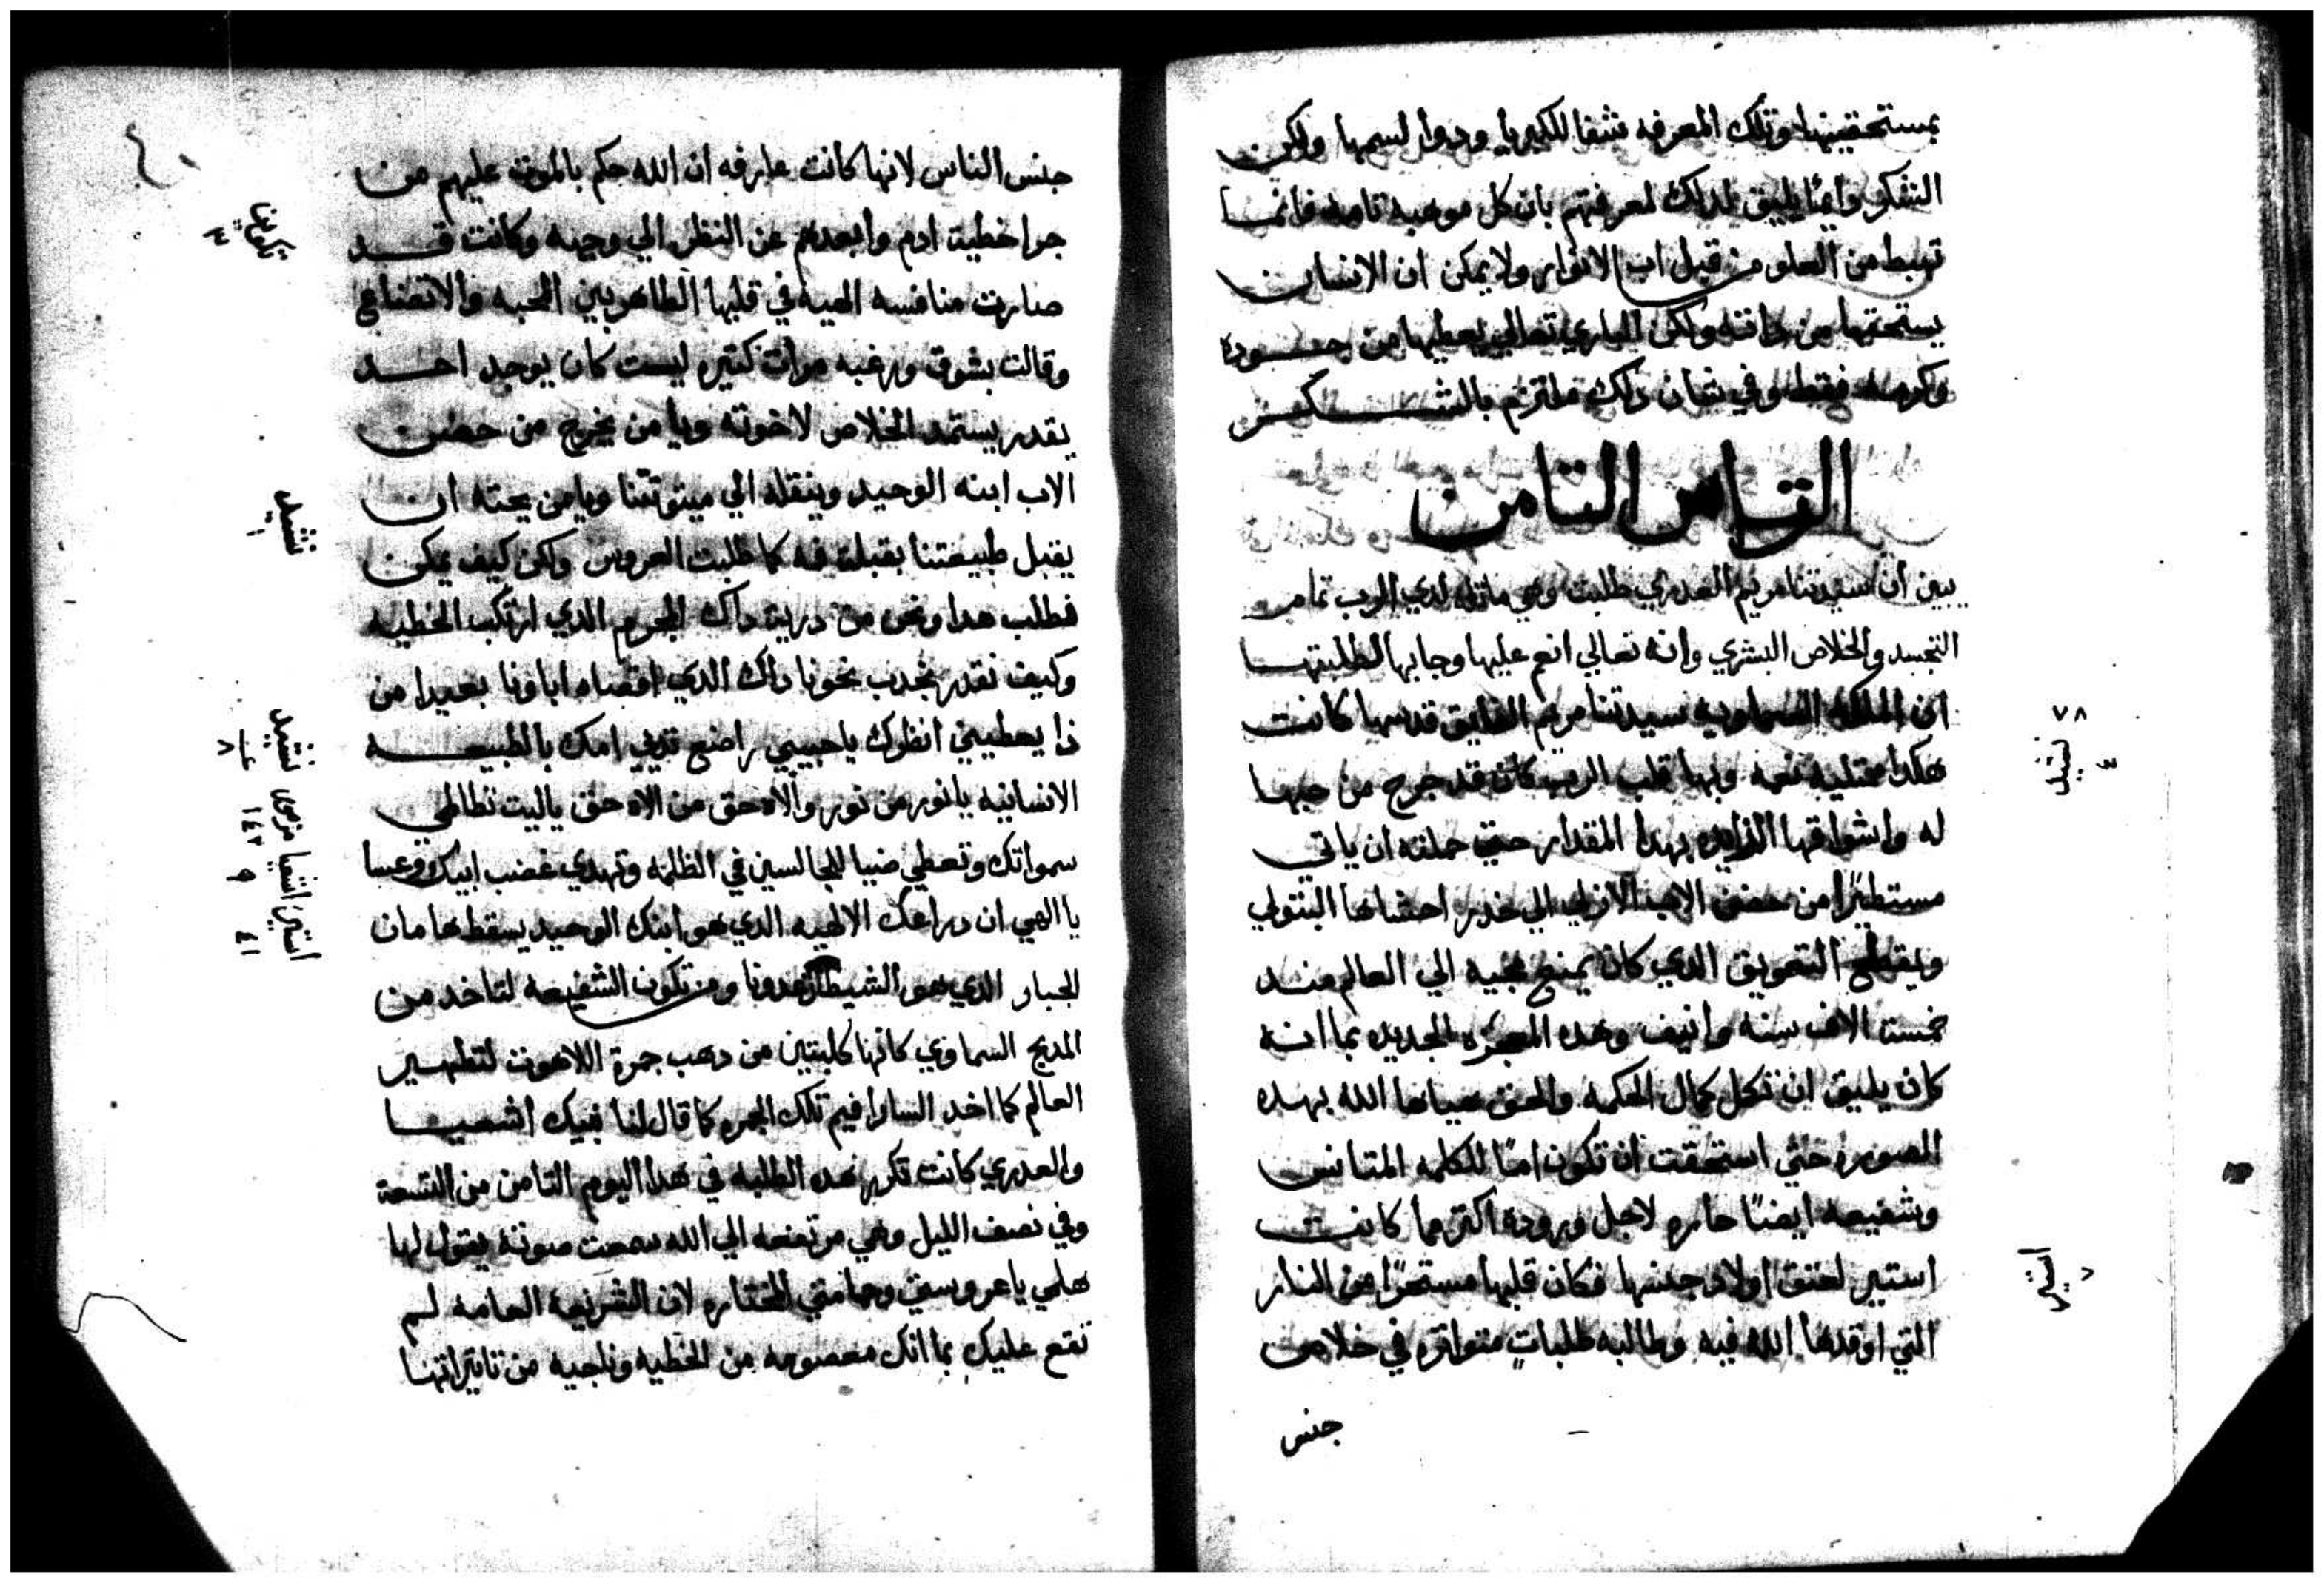 بمستحقينها وتلك المعرفه شفا للكبريا ودوا لسمها ولكن
الشكر دايمًا يليق لداك لمعرفتهم بان كل موهبه تامه فانما
تهبط من العلو من قبل اب الانوار ولا يمكن ان الانسان
يستحقها من داته ولكن الباري تعالي يعطيها من جوده
وكرمه فقط وفي شان دلك ملتزم بالشكر
القياس التامن
يبين ان سيدتنا مريم العدري طلبت وهي ماتله لدي الرب تمام
التجسد والخلاص البشري وانه تعالي انعم عليها وجابها لطلبتها
ان الملكه السماويه سيدتنا مريم الفايق قدسها كانت
هكدا ممتليه نعمه وبها قلب الرب كان قد جرح من حبها
له واشواقها الزايده بهدا المقدار حتي حملته ان ياتي
مستطيرًا من حضن الاب الازلي الي خدر احشاها البتولي
ويقطع التعويق الدي كان يمنع مجيه الي العالم مند
خمسة الاف سنه وانيف وهده المعجزه الجديده بما انه
كان يليق ان تكمل كمال الحكمه والحق هياها الله بهده
الصوره حتي استحقت ان تكون امًا للكلمه المتانس
وشفيعه ايضًا حاره لاجل وروده اكتر مما كانت
استير لعتق اولاد جنسها فكان قلبها مستحرًا من النار
التي اوقدها الله فيه وطالبه طلباتٍ متواتره في خلاص
جنس
٧٨
نشيد
٤
استير
٧
جنس الناس لانها كانت عارفه ان الله حكم بالموت عليهم من
جرا خطية ادم وابعدهم عن النظر الي وجهه وكانت قد
صارت منافسه الهيه في قلبها الطاهر بين المحبه والاتضاع
وقالت بشوق ورغبه مرات كتيره ليست كان يوجد احد
يقدر يستمد الخلاص لاخوته ويا من يخرج من حضن
الاب ابنه الوحيد وينقله الي ميتوتتنا ويا من يحته ان
يقبل طبيعتنا بقبلة فه كما طلبت العروس ولكن كيف يمكن
فطلب هدا ونحن من درية داك المجرم الدي ارتكب الخطيه
وكيف نقدر نجدب نحونا داك الدي اقصاه اباونا بعيدا من
دا يعطيني انظرك يا حبيبي راضع تديي امك بالطبيعه
الانسانيه يا نور من نور والاه حق من الاه حق يا ليت تطاطي
سمواتك وتعطي ضيا للجالسين في الظلمه وتهدي غضب ابيك وعسا
يا الهي ان دراعك الالهيه الدي هو ابنك الوحيد يسقط هامان
الجبار الدي هو الشيطان عدونا ومن تكون الشفيعه لتاخد من
المدبح السماوي كانها كلبتين من دهب جمرة اللاهوت لتطهير
العالم كما اخد السارافيم تلك الجمره كما قال لنا نبيك اشعيا
والعدري كانت تكرر هده الطلبه في هدا اليوم التامن من التسعة
وفي نصف الليل وهي مرتفعه الي الله سمعت صوته يقول لها
هلمي يا عروستي وحمامتي المختاره لان الشريعه العامه لم
تقع عليك بما انك معصومه من الخطيه وناجيه من تاتيراتها
تكوين
٣
نشيد
١
نشيد مزمور اشعيا استير
٨ ١٤٣ ٩